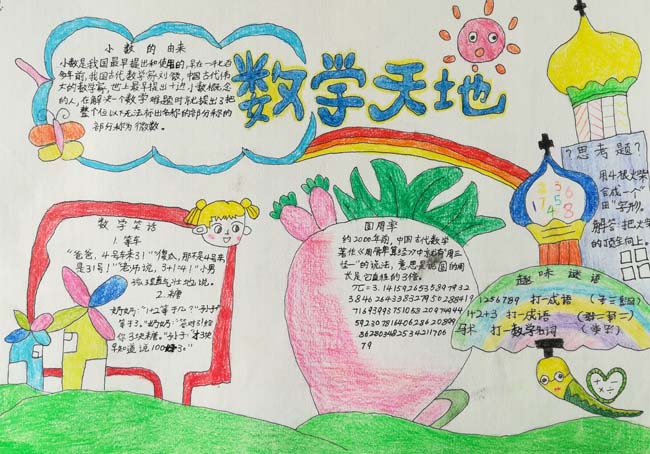 数学天地
小数的由来
小数是我国最早提出和使用的,早在一千七百
多年前,我国古代数学家刘徽,中国古代伟
大的数学家,也是最早提出十进小数概念
的人,在解决一个数学难题时就提出了把
整个位以下无法标出名称的部分称的
部分称为微数。
数学笑话
1.等车
"爸爸,4号车来了!""傻瓜,那不是4号车
是31号!""老师说,3+1=4!"小男
孩理直气壮地说。
2.糖
奶奶:"1+2等于几?"孙子:"
等于3。"奶奶:"答对了!给
你3块糖。"孙子:"才3块
早知道说100好了。"
圆周率
约2000年前,中国古代数学
著作《周髀算经》中就有"周三
径一"的说法,意思是说圆的周
长是它直径的3倍。
π=3.1415926535897932
3846264338327950288419
7169399375105820974944
5923078164062862089 9
86280348253421170 6
79
?思考题?
用4根火柴
合成一个"
田"字形。
解答:把火柴
的顶朝上。
1 2 3 6
7 4 5 8
趣味谜语
1256789 打一成语 (丢三落四)
1+2+3 打一成语 (接二连三)
打一数学名词
+ - × ÷